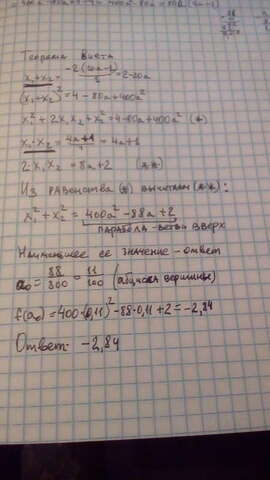 Теорема Виета
x₁+x₂ = -2(10a-1)/1 = 2-20a
(x₁+x₂)² = 4-80a+400a²
x₁²+2x₁x₂+x₂² = 4-80a+400a² (*)
x₁·x₂ = 4a+1/1 = 4a+1
2x₁x₂ = 8a+2 (**)
Из равенства (*) вычитаем (**):
x₁²+x₂² = 400a²-88a+2
парабола-ветви вверх
Наименьшее ее значение-ответ
a₀ = 88/800 = 11/100 (абцисса вершины)
f(a₀) = 400·(0,11)²-88·0,11+2 = -2,84
Ответ: -2,84